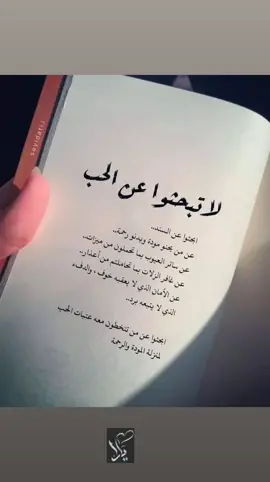 sayidaty
لا تبحثوا عن الحب
ابحثوا عن السند..
عن من يحنو مودة ويدنو رحمة..
عن ساتر العيوب بما تحملون من ميزات..
عن غافر الزلات بما تحاملتم من أعذار..
عن الأمان الذي لا يعقبه خوف، والدفء
الذي لا يتبعه برد..
ابحثوا عن من تتخطون معه عتبات الحب
لمنزلة المودة والرحمة